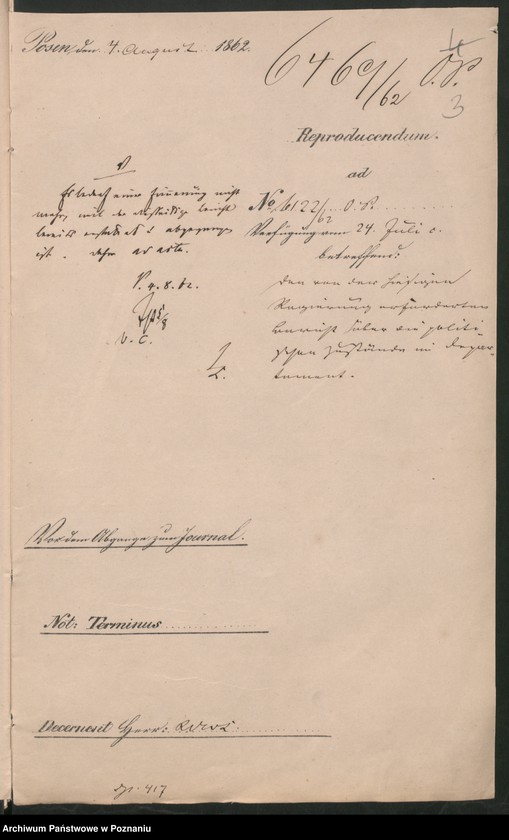 Posen, den 4. August 1862.
6469/62 O.P.
4
3
Reproducendum.
ad
No. 6122/62 O.P.
Verfügung vom 24. Juli c.
betreffend:
den von der hiesigen
Regierung erforderten
Bericht über die politi-
schen Zustände im Depar-
tement.
V
Es bedarf einer Erinnerung nicht
mehr, weil der Bericht
bereits erstattet & abgegangen
ist. Daher ad acta.
P. 4. 8. 62.
Vor dem Abgange zum Journal.
Not: Terminus
Decernent Herr:
Archiwum Państwowe w Poznaniu